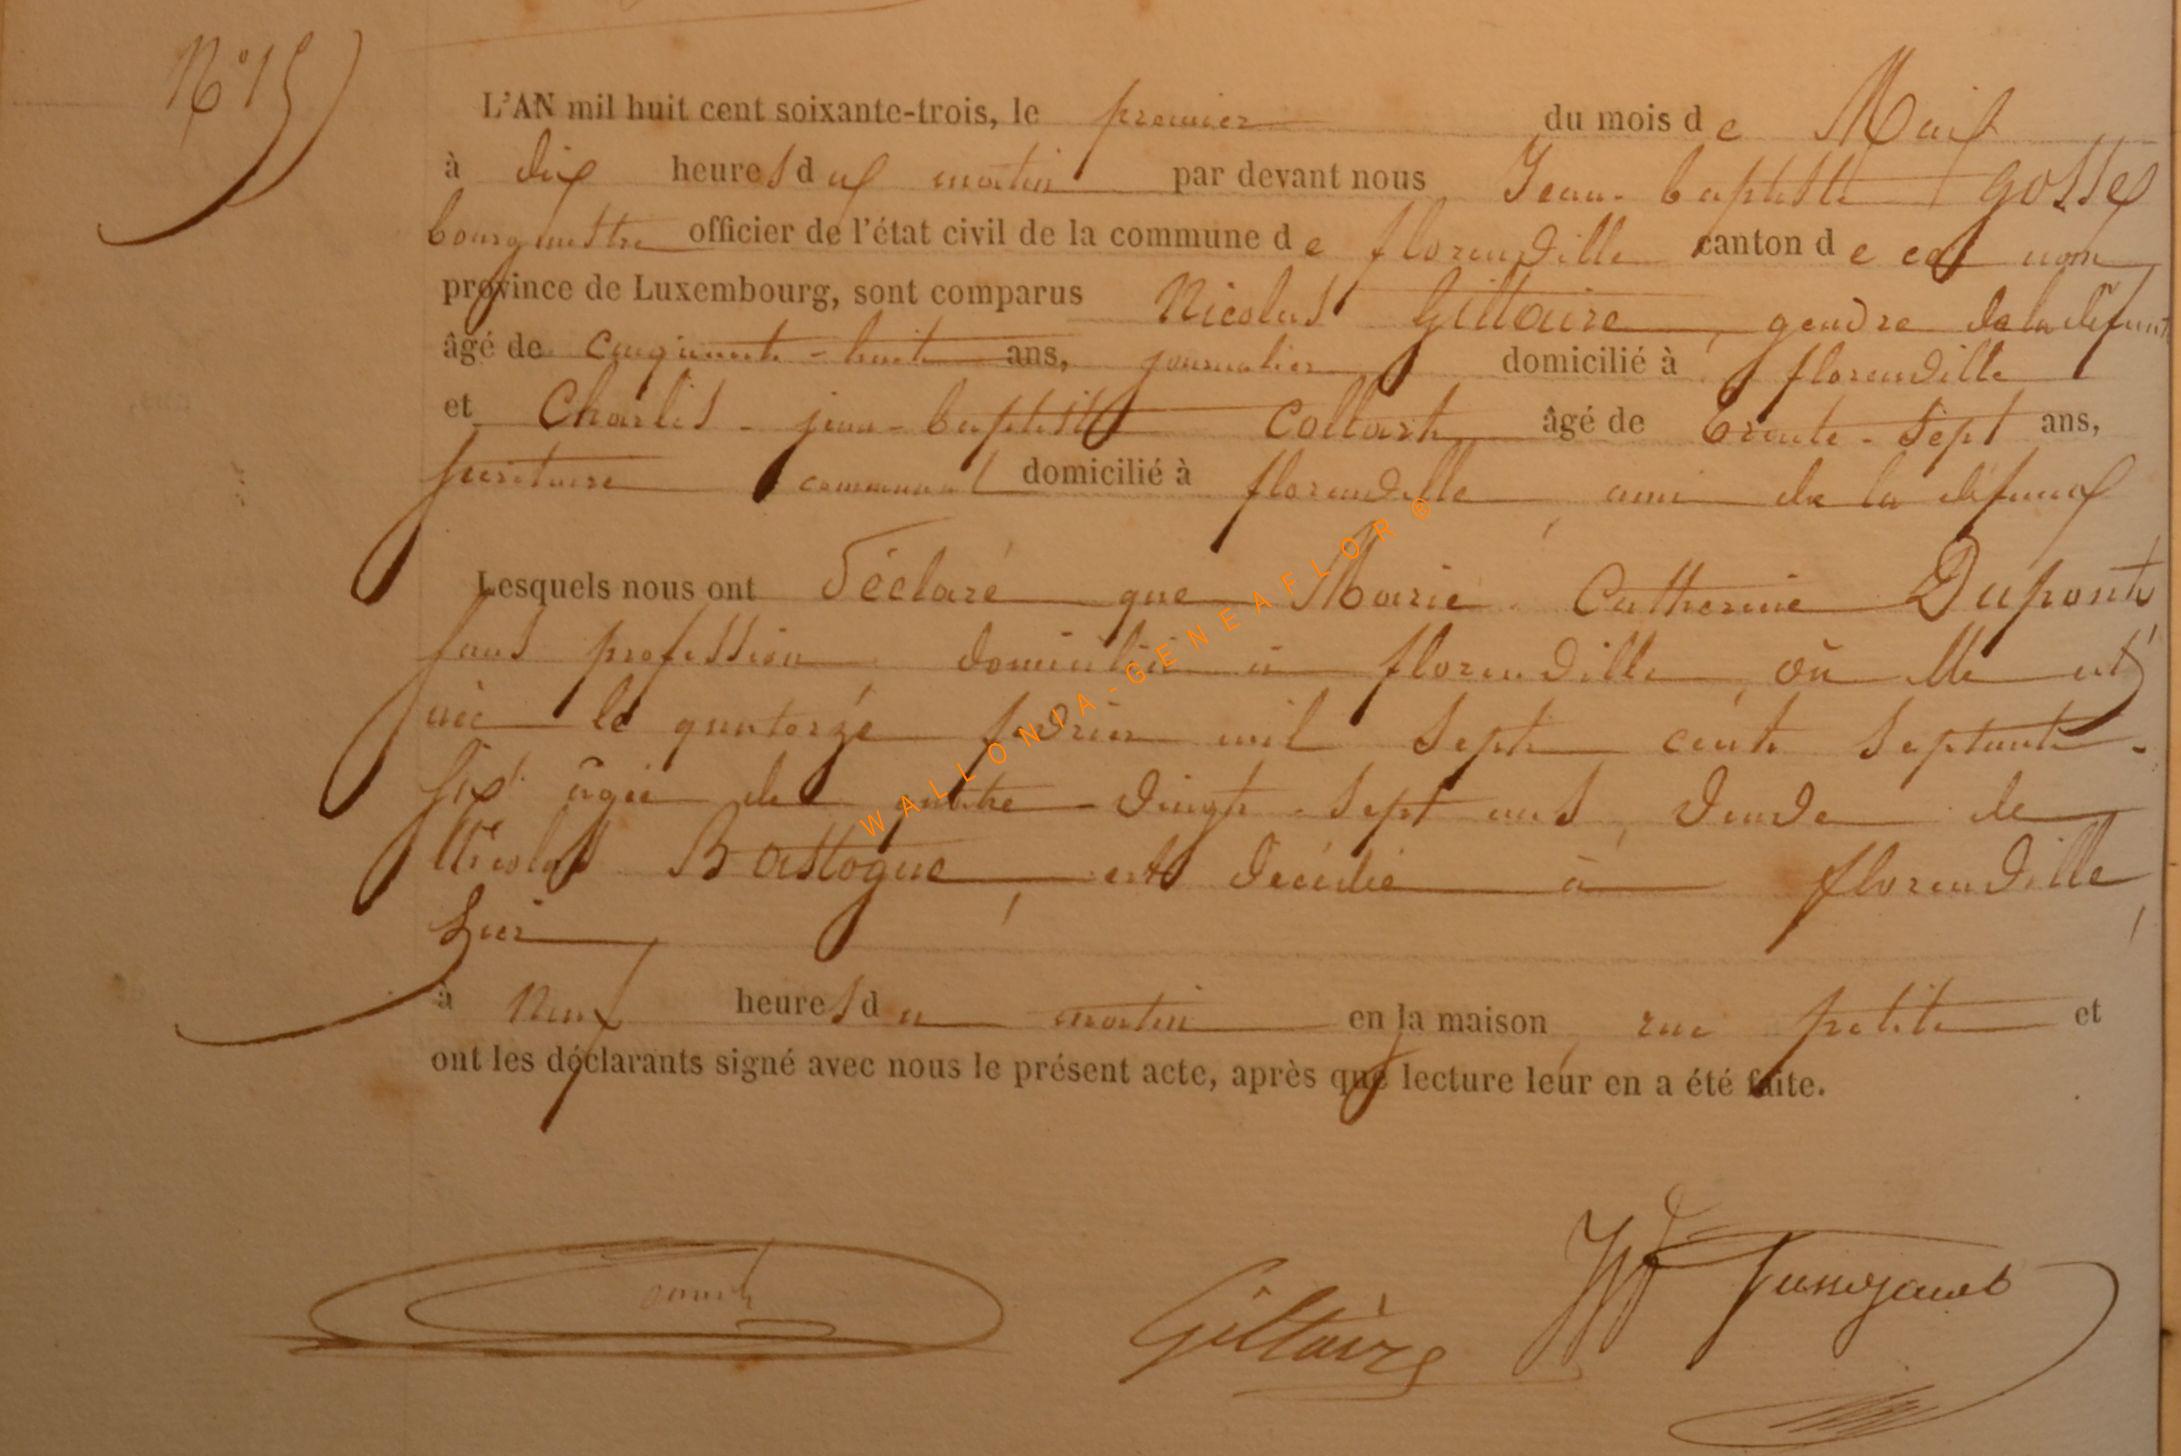 N° 15
L'AN mil huit cent soixante-trois, le premier du mois de Mai
à dix heures du matin par devant nous Jean-baptiste Gosse
bourgmestre officier de l'état civil de la commune de florenville canton de ce nom
province de Luxembourg, sont comparus Nicolas Giltaire, gendre de la défunte
âgé de cinquante-huit ans, journalier domicilié à florenville
et Charles-jean-baptiste Collart âgé de trente-sept ans,
secrétaire communal domicilié à florenville, ami de la défunte
Lesquels nous ont déclaré que Marie Catherine Dupont
sans profession domiciliée à florenville, où elle est
née le quatorze février mil sept cent septante-
six âgée de quatre-vingt-sept ans, veuve de
Nicolas Bastogne, est décédée à florenville,
hier
à neuf heures du matin en la maison, rue petite et
ont les déclarants signé avec nous le présent acte, après que lecture leur en a été faite.
Giltaire
WALLONIA-GENEAFLOR ®